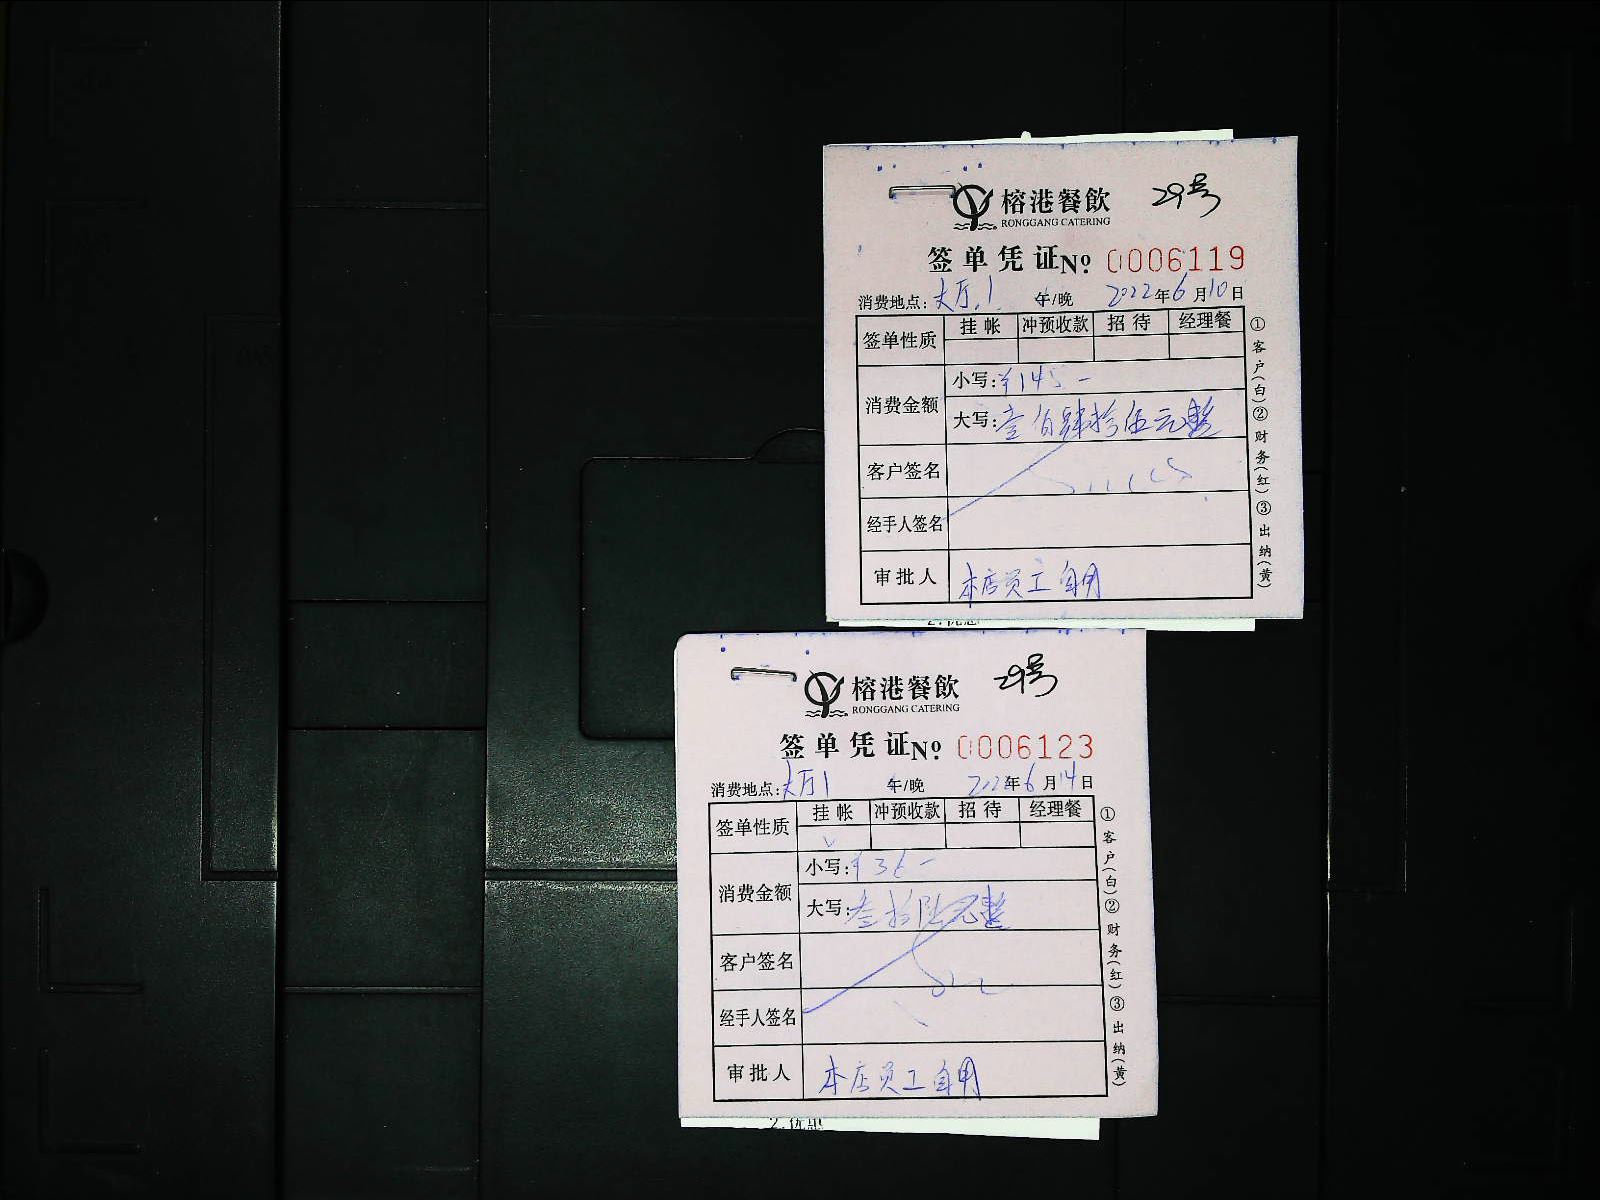 29号
榕港餐飲
RONGGANG CATERING
签单凭证 № 0006119
消费地点: 大厅1 午/晚 2022年6月10日
签单性质 挂帐 冲预收款 招待 经理餐
消费金额 小写: ¥145—
大写: 壹佰肆拾伍元整
客户签名
经手人签名
审批人 本店员工自用
①客户(白)②财务(红)③出纳(黄)
2.优惠
29号
榕港餐飲
RONGGANG CATERING
签单凭证 № 0006123
消费地点: 大厅1 午/晚 2022年6月14日
签单性质 挂帐 冲预收款 招待 经理餐
消费金额 小写: ¥36—
大写: 叁拾陆元整
客户签名
经手人签名
审批人 本店员工自用
①客户(白)②财务(红)③出纳(黄)
2.优惠